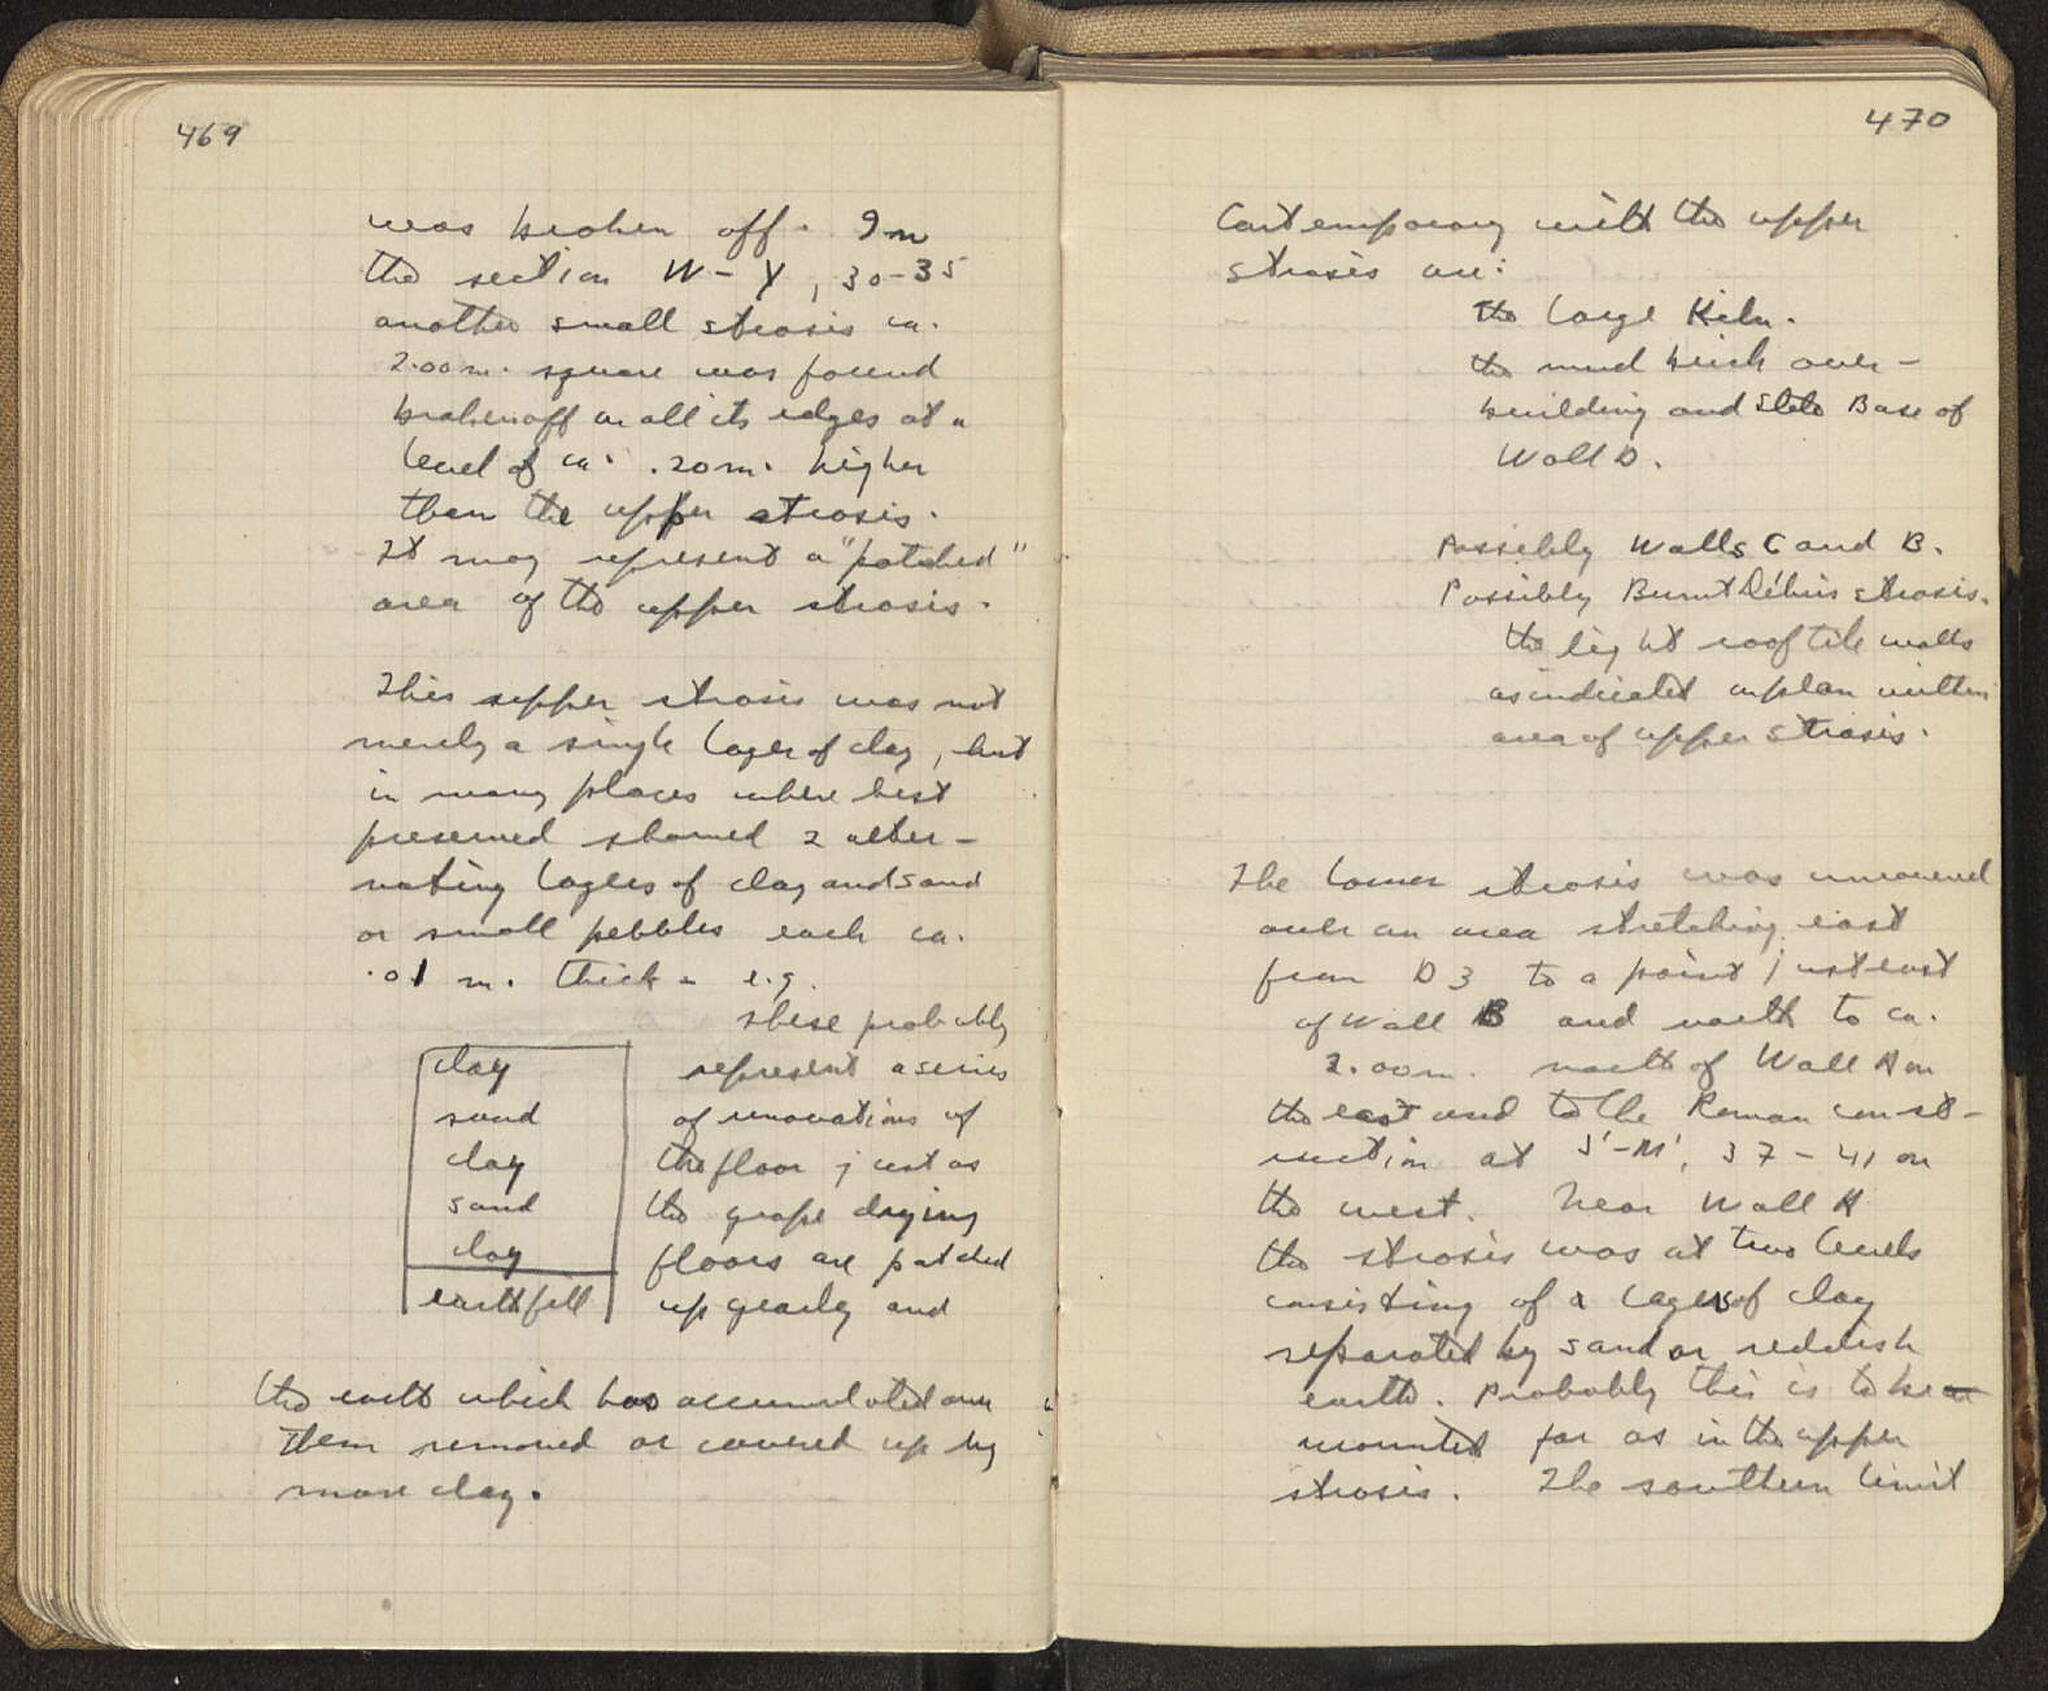 469
was broken off. In
the section W-Y, 30-35
another small strosis ca.
2.00m. square was found
broken off on all its edges at a
level of ca. .20m. higher
than the upper strosis.
It may represent a "patched"
area of the upper strosis.
This upper strosis was not
merely a single layer of clay, but
in many places where best
preserved showed 2 alter-
nating layers of clay and sand
or small pebbles each ca.
.01 m. thick - e.g.
clay
sand
clay
sand
clay
earth fill
These probably
represent a series
of renovations of
the floor just as
the grape drying
floors are patched
up yearly and
the earth which has accumulated over
them removed or covered up by
more clay.
470
Contemporary with the upper
strosis are:
the large Kiln.
the mud brick over-
building and Stele Base of
Wall D.
Possibly Walls C and B.
Possibly Burnt Débris strosis.
the light roof tile walls
as indicated on plan within
area of upper strosis.
The lower strosis was uncovered
over an area stretching east
from D3 to a point just east
of Wall B and north to ca.
2.00m. north of Wall A on
the east and to the Roman const-
ruction at J'-M', 37-41 on
the west. Near Wall A
the strosis was at two levels
consisting of 2 layers of clay
separated by sand or reddish
earth. Probably this is to be
accounted for as in the upper
strosis. The southern limit